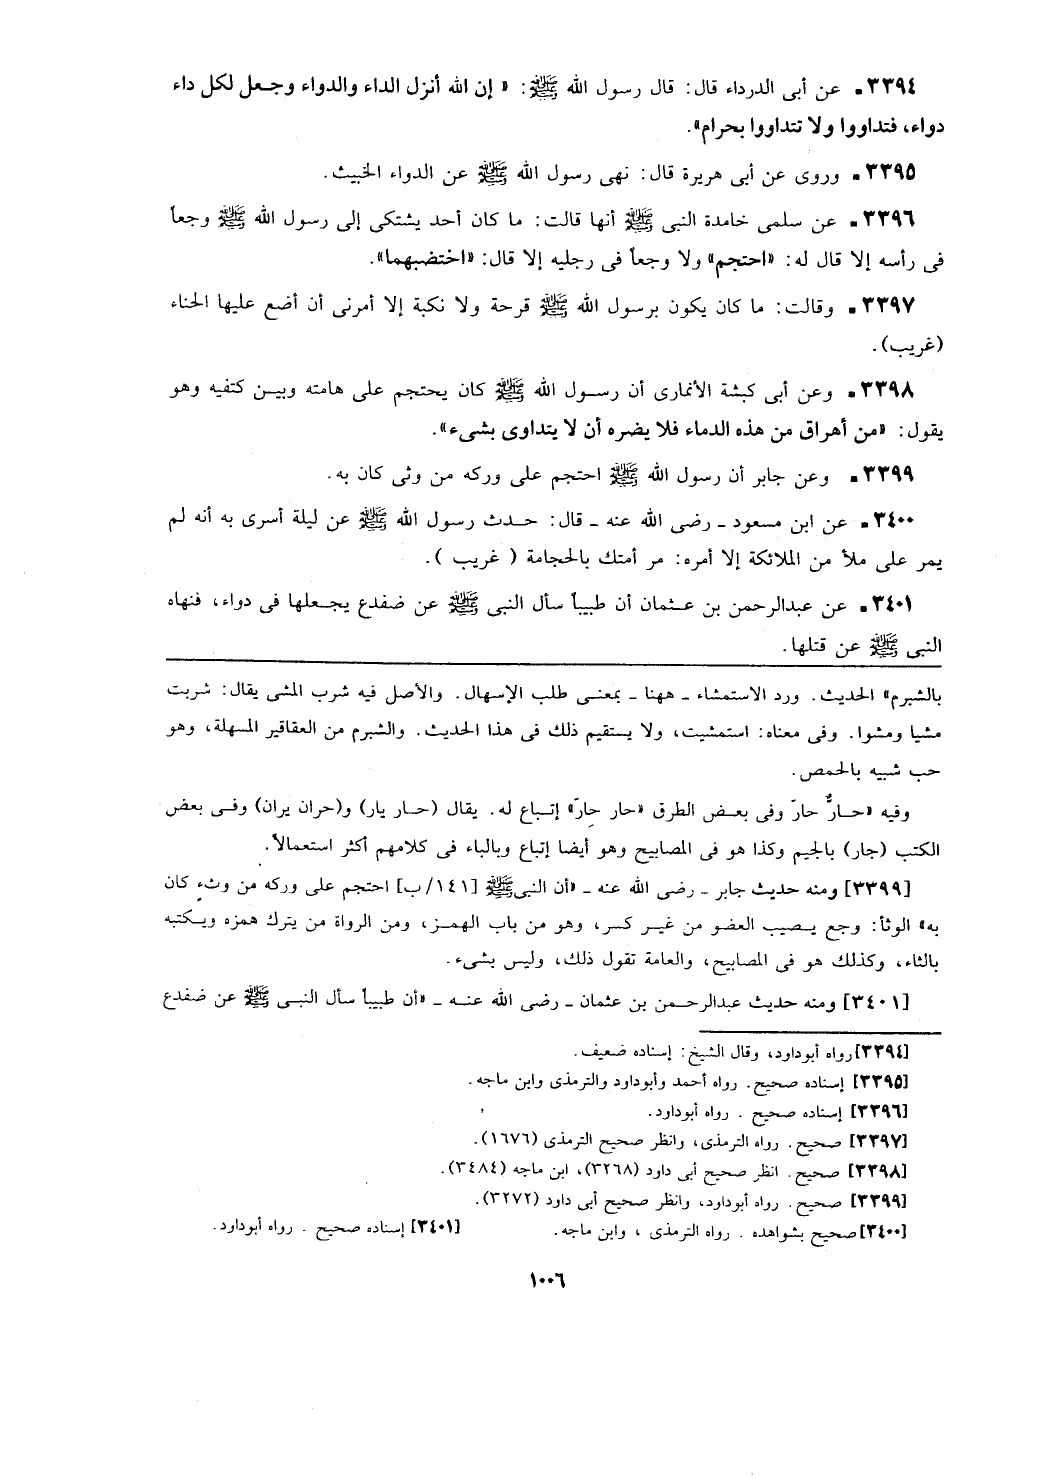 ٣٣٩٤- عن أبى الدرداء قال: قال رسول الله ﷺ: « إن الله أنزل الداء والدواء وجعل لكل داء
دواء، فتداووا ولا تتداووا بحرام».
٣٣٩٥- وروى عن أبى هريرة قال: نهى رسول الله ﷺ عن الدواء الخبيث.
٣٣٩٦- عن سلمى خامدة النبى ﷺ أنها قالت: ما كان أحد يشتكى إلى رسول الله ﷺ وجعاً
فى رأسه إلا قال له: «احتجم» ولا وجعاً فى رجليه إلا قال: «اختضبهما».
٣٣٩٧- وقالت: ما كان يكون برسول الله ﷺ قرحة ولا نكبة إلا أمرنى أن أضع عليها الحناء
(غريب).
٣٣٩٨- وعن أبى كبشة الأنمارى أن رسول الله ﷺ كان يحتجم على هامته وبين كتفيه وهو
يقول: «من أهراق من هذه الدماء فلا يضره أن لا يتداوى بشىء».
٣٣٩٩- وعن جابر أن رسول الله ﷺ احتجم على وركه من وثى كان به.
٣٤٠٠- عن ابن مسعود ـ رضى الله عنه ـ قال: حدث رسول الله ﷺ عن ليلة أسرى به أنه لم
يمر على ملأ من الملائكة إلا أمره: مر أمتك بالحجامة ( غريب ).
٣٤٠١- عن عبدالرحمن بن عثمان أن طبيباً سأل النبى ﷺ عن ضفدع يجعلها فى دواء، فنهاه
النبى ﷺ عن قتلها.
بالشبرم» الحديث. ورد الاستمشاء ـ ههنا ـ بمعنى طلب الإسهال. والأصل فيه شرب المشى يقال: شربت
مشيا ومشوا. وفى معناه: استمشيت، ولا يستقيم ذلك فى هذا الحديث. والشبرم من العقاقير المسهلة، وهو
حب شبيه بالحمص.
وفيه «حارٌّ حارّ وفى بعض الطرق «حار حارّ» إتباع له. يقال (حار يار) و(حران يران) وفى بعض
الكتب (جار) بالجيم وكذا هو فى المصابيح وهو أيضا إتباع وبالياء فى كلامهم أكثر استعمالاً.
[٣٣٩٩] ومنه حديث جابر ـ رضى الله عنه ـ «أن النبىﷺ [١٤١/ب] احتجم على وركه من وثء كان
به» الوثأ: وجع يصيب العضو من غير كسر، وهو من باب الهمز، ومن الرواة من يترك همزه ويكتبه
بالثاء، وكذلك هو فى المصابيح، والعامة تقول ذلك، وليس بشىء.
[٣٤٠١] ومنه حديث عبدالرحمن بن عثمان ـ رضى الله عنه ـ «أن طبيباً سأل النبى ﷺ عن ضفدع
[٣٣٩٤]رواه أبوداود، وقال الشيخ: إسناده ضعيف.
[٣٣٩٥] إسناده صحيح. رواه أحمد وأبوداود والترمذى وابن ماجه.
[٣٣٩٦] إسناده صحيح . رواه أبوداود.
[٣٣٩٧] صحيح. رواه الترمذى، وانظر صحيح الترمذى (١٦٧٦).
[٣٣٩٨] صحيح. انظر صحيح أبى داود (٣٢٦٨)، ابن ماجه (٣٤٨٤).
[٣٣٩٩] صحيح. رواه أبوداود، وانظر صحيح أبى داود (٣٢٧٢).
[٣٤٠٠]صحيح بشواهده . رواه الترمذى ، وابن ماجه. [٣٤٠١] إسناده صحيح . رواه أبوداود.
١٠٠٦